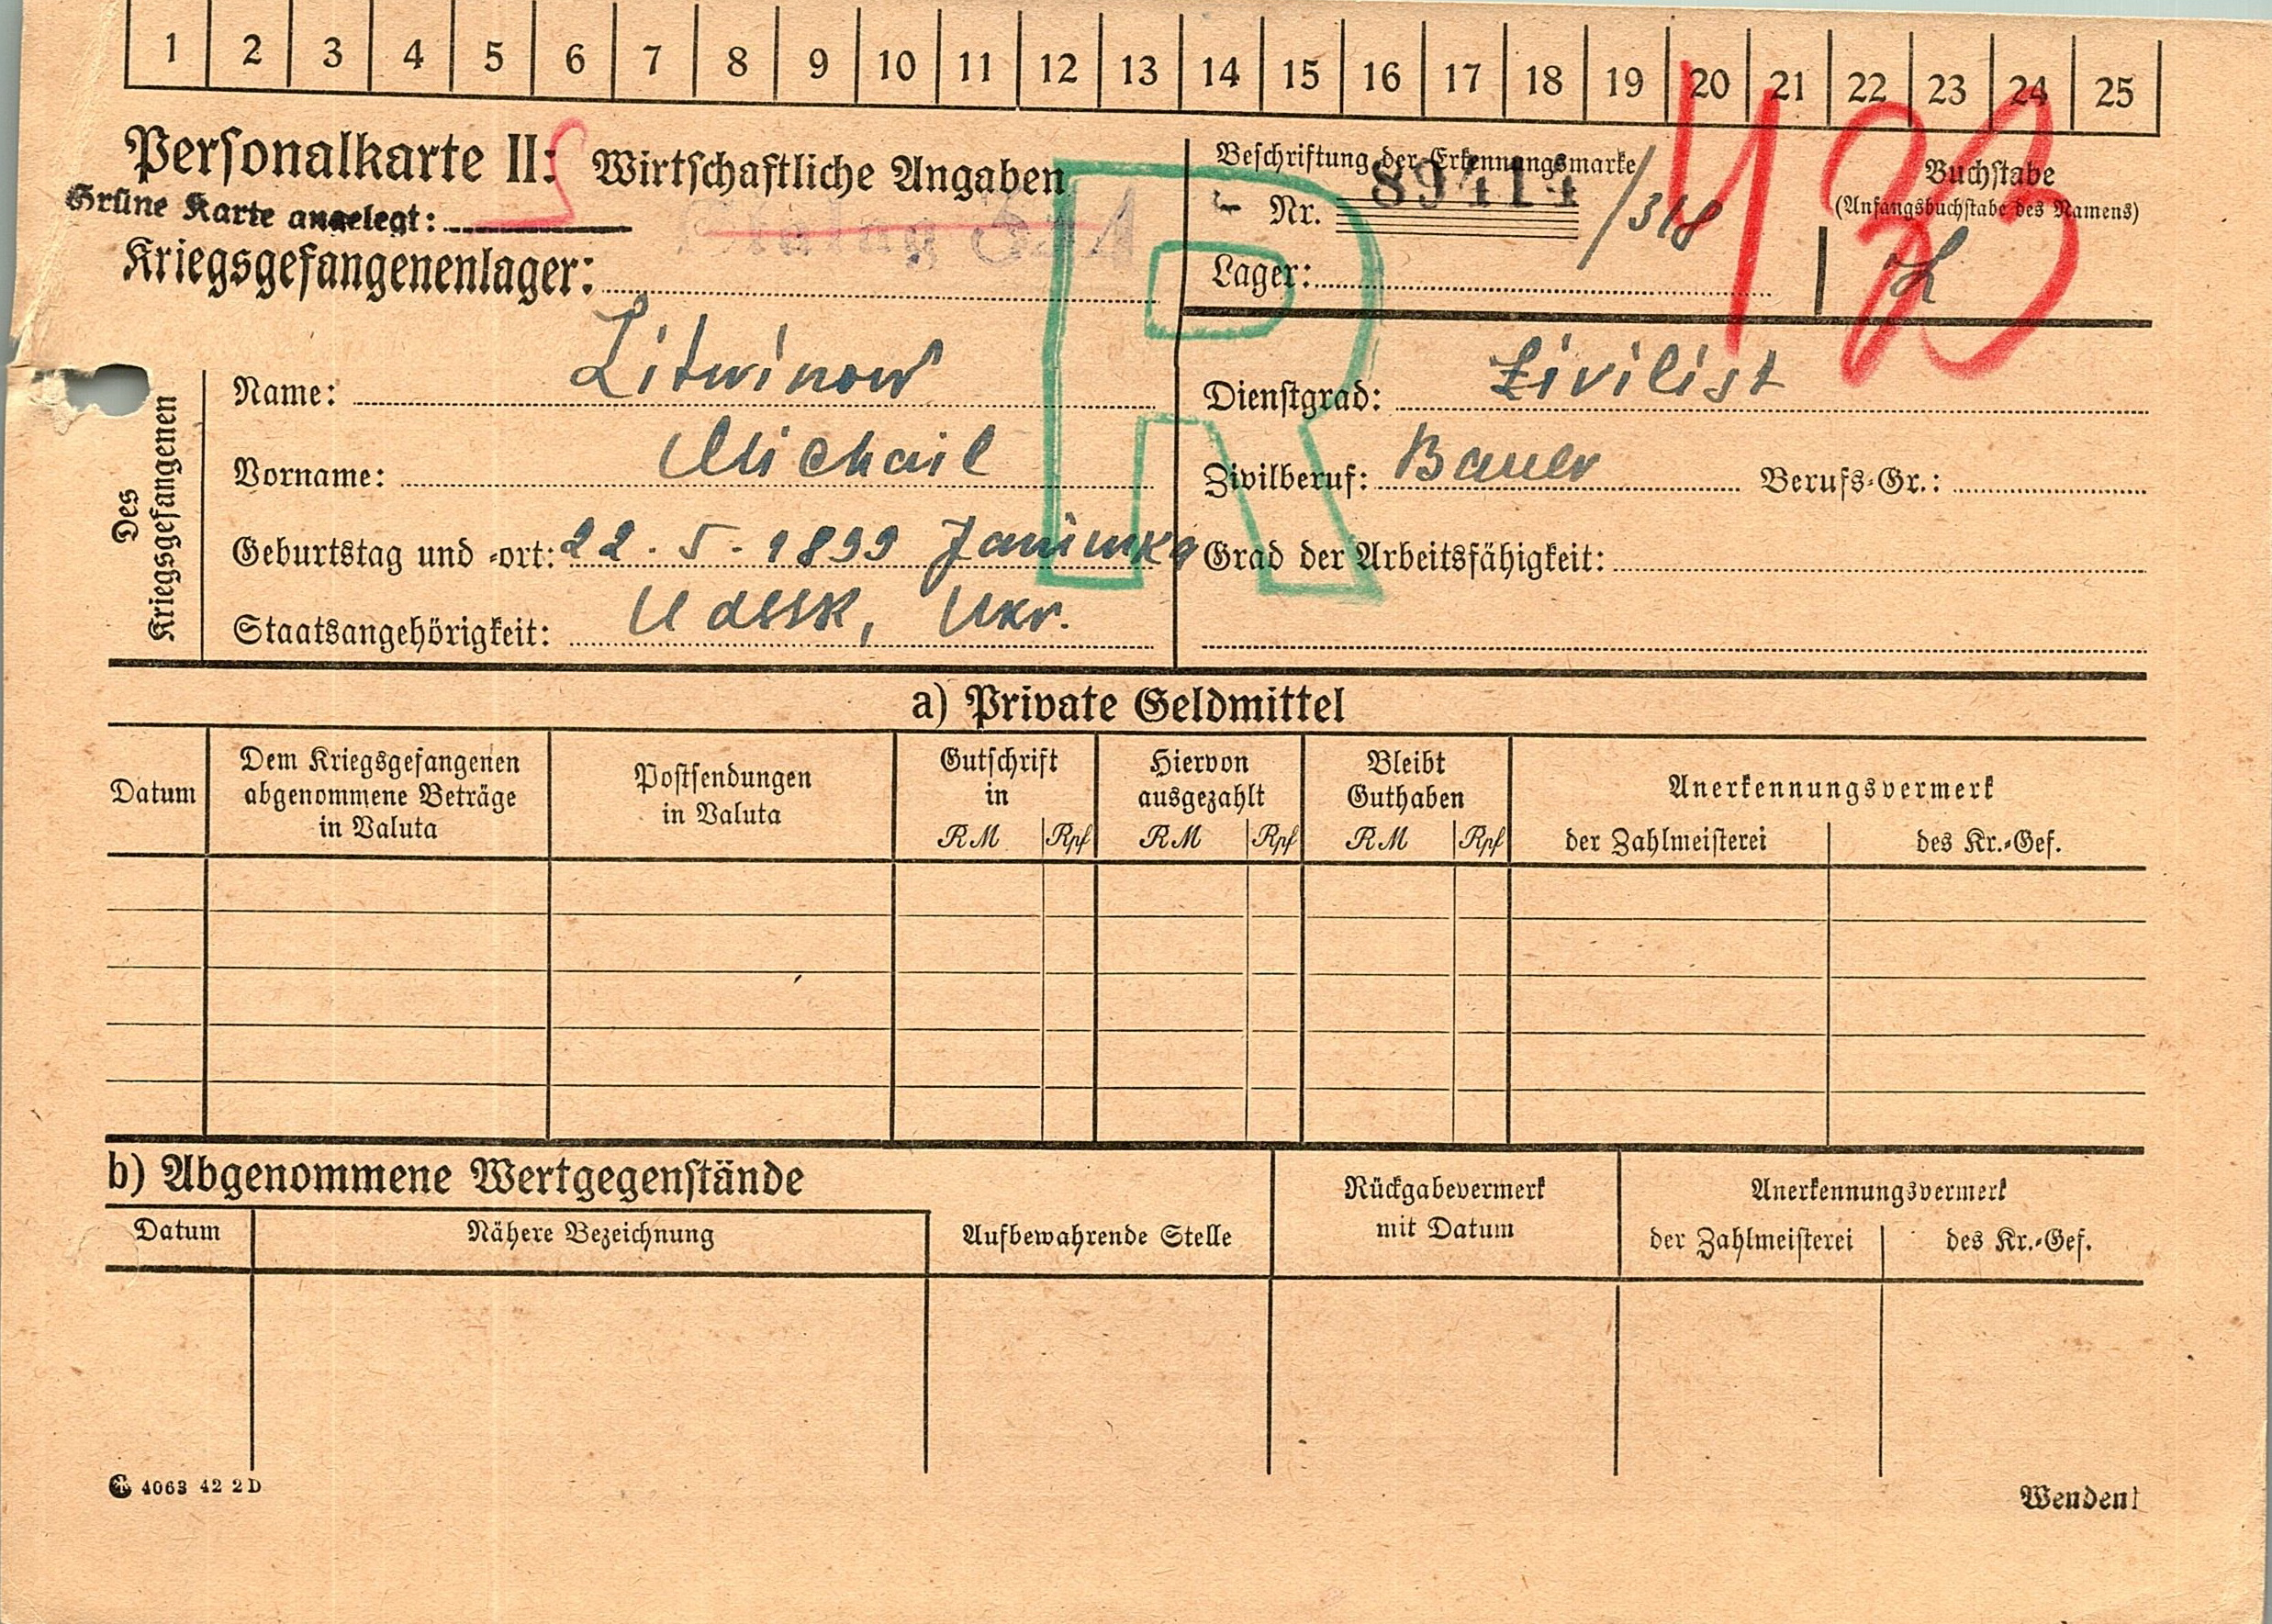 1 2 3 4 5 6 7 8 9 10 11 12 13 14 15 16 17 18 19 20 21 22 23 24 25
Personalkarte II: Wirtschaftliche Angaben
Grüne Karte angelegt:
Kriegsgefangenenlager: Stalag
Beschriftung der Erkennungsmarke
Nr. 89414 /318
Lager:
Buchstabe
(Anfangsbuchstabe des Namens)
L
433
R
Des Kriegsgefangenen
Name: Litwinow
Vorname: Michail
Geburtstag und -ort: 22. 5. 1899
Staatsangehörigkeit: UdSSR, Ukr.
Dienstgrad: Zivilist
Zivilberuf: Bauer Berufs-Gr.:
Grad der Arbeitsfähigkeit:
a) Private Geldmittel
Datum
Dem Kriegsgefangenen
abgenommene Beträge
in Valuta
Postsendungen
in Valuta
Gutschrift
in
RM Rpf
Hiervon
ausgezahlt
RM Rpf
Bleibt
Guthaben
RM Rpf
Anerkennungsvermerk
der Zahlmeisterei des Kr.-Gef.
b) Abgenommene Wertgegenstände
Datum Nähere Bezeichnung
Aufbewahrende Stelle
Rückgabevermerk
mit Datum
Anerkennungsvermerk
der Zahlmeisterei des Kr.-Gef.
4063 42 2 D
Wenden!